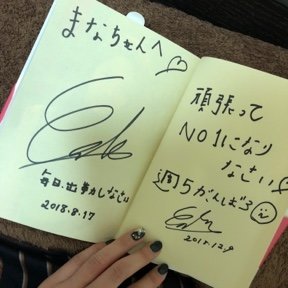 まなちゃんへ♡
毎日出勤しなさい
2018.8.17
頑張って
NO1になり
なさい♡
週5がんばろ
2017.12.9